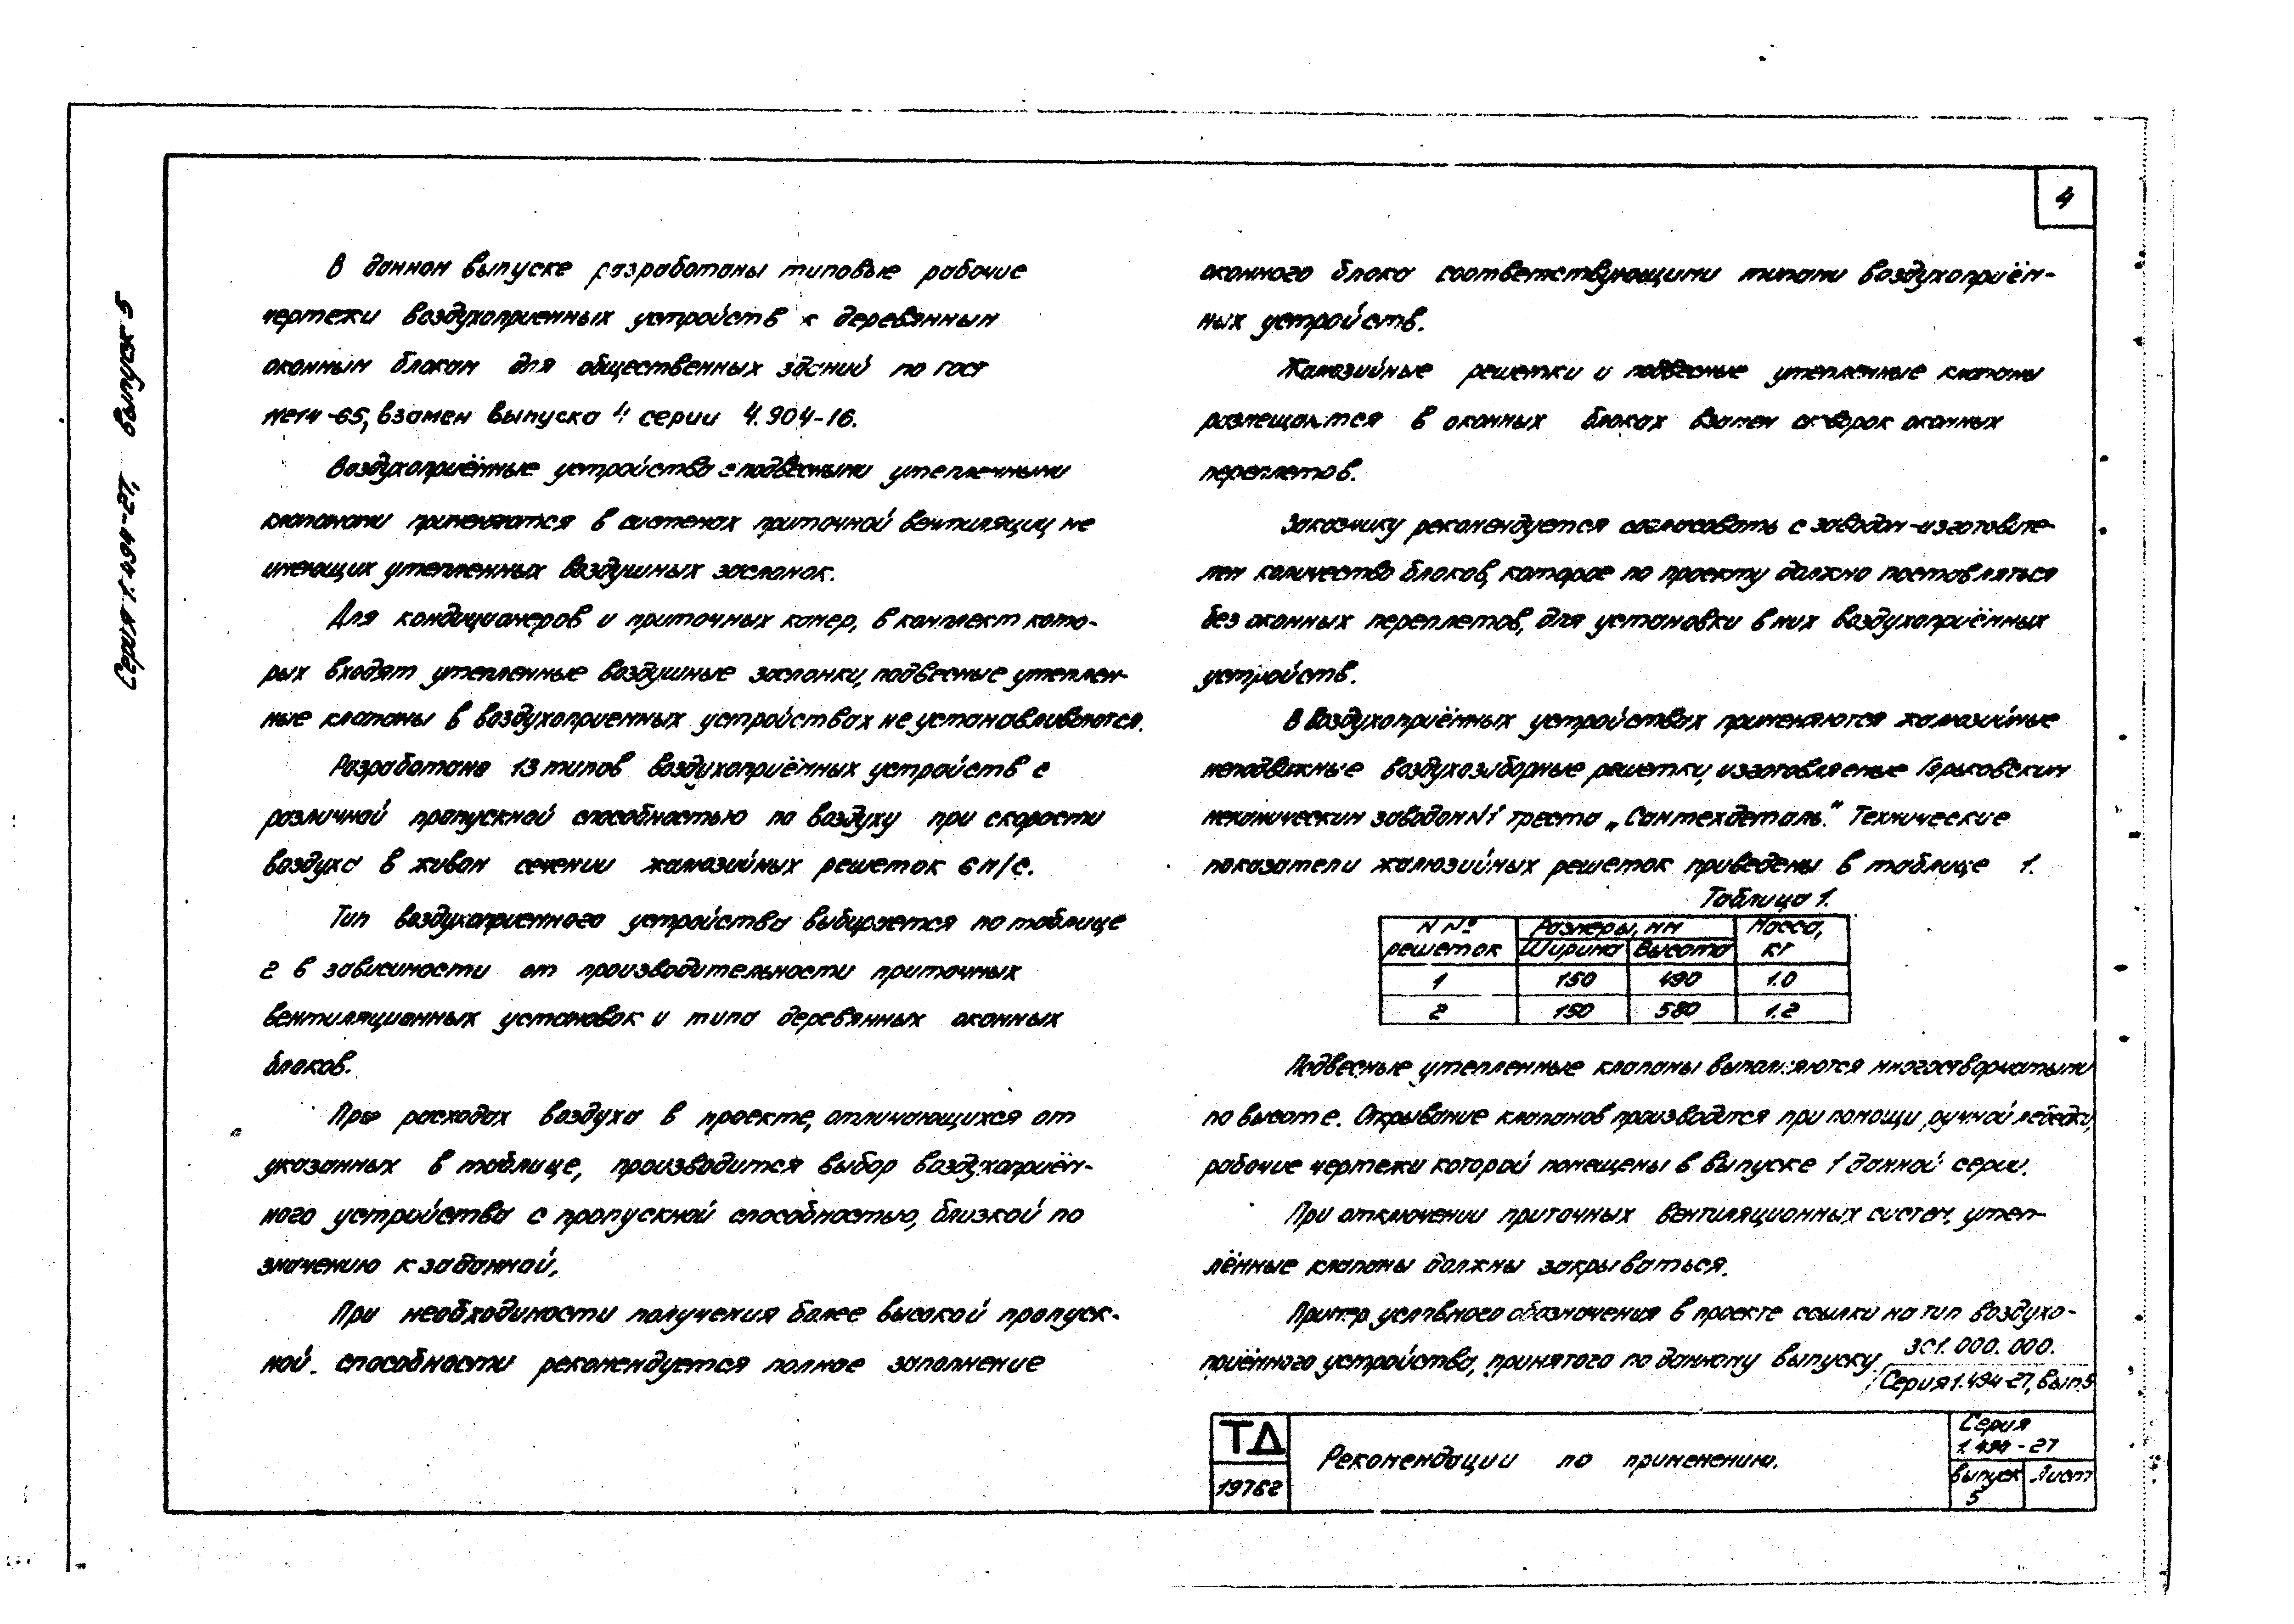 4
Серия 1.494-27, Выпуск 5
В данном выпуске разработаны типовые рабочие
чертежи воздухоприемных устройств к деревянным
оконным блокам для общественных зданий по ГОСТ
-65, взамен выпуска 4 серии 4.904-16.
Воздухоприёмные устройства с подвесными утепленными
клапанами применяются в системах приточной вентиляции, не
имеющих утепленных воздушных заслонок.
Для кондиционеров и приточных камер, в комплект кото-
рых входят утепленные воздушные заслонки, подвесные утеплен-
ные клапаны в воздухоприемных устройствах не устанавливаются.
Разработано 13 типов воздухоприёмных устройств с
различной пропускной способностью по воздуху при скорости
воздуха в живом сечении жалюзийных решеток 6 м/с.
Тип воздухоприемного устройства выбирается по таблице
2 в зависимости от производительности приточных
вентиляционных установок и типа деревянных оконных
блоков.
При расходах воздуха в проекте, отличающихся от
указанных в таблице, производится выбор воздухоприём-
ного устройства с пропускной способностью, близкой по
значению к заданной.
При необходимости получения более высокой пропуск-
ной способности рекомендуется полное заполнение
оконного блока соответствующими типами воздухоприём-
ных устройств.
Жалюзийные решетки и подвесные утепленные клапаны
размещаются в оконных блоках взамен створок оконных
переплетов.
Заказчику рекомендуется согласовать с заводом-изготовите-
лем количество блоков, которое по проекту должно поставляться
без оконных переплетов, для установки в них воздухоприёмных
устройств.
В воздухоприёмных устройствах применяются жалюзийные
неподвижные воздухозаборные решетки, изготовляемые Горьковским
механическим заводом №1 треста „Сантехдеталь." Технические
показатели жалюзийных решеток приведены в таблице 1.
Таблица 1.
N№ решеток | Размеры, мм | Масса, кг
Ширина | Высота
1 | 150 | 490 | 1.0
2 | 150 | 580 | 1.2
Подвесные утепленные клапаны выполняются многостворчатыми
по высоте. Открывание клапанов производится при помощи ручной лебедки,
рабочие чертежи которой помещены в выпуске 1 данной серии.
При отключении приточных вентиляционных систем, утеп-
лённые клапаны должны закрываться.
Пример условного обозначения в проекте ссылки на тип воздухо-
приёмного устройства, принятого по данному выпуску
3С1.000.000.
Серия 1.494-27, вып.5
ТД
1976г
Рекомендации по применению.
Серия
1.494-27
Выпуск
5
Лист